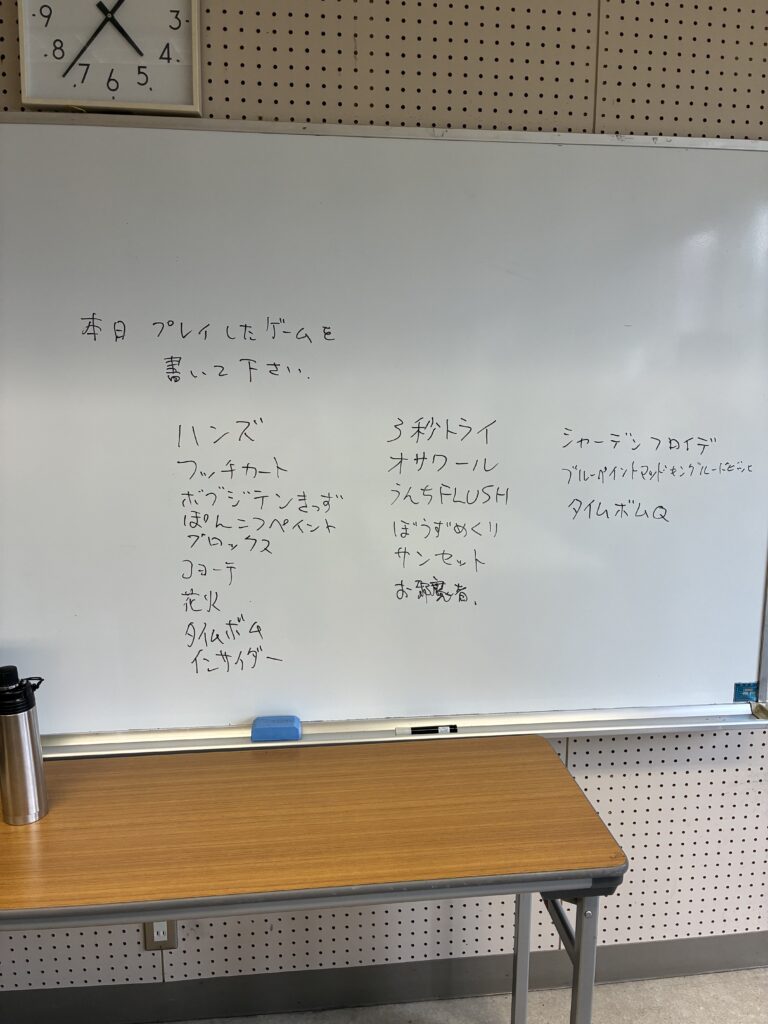 9
8
7
6
5
4
3
本日 プレイしたゲームを
書いて下さい.
ハンズ
フッチカート
ボブジテンきっず
ぽんこつペイント
ブロックス
コヨーテ
花火
タイムボム
インサイダー
3秒トライ
オサワール
うんちFLUSH
ぼうずめくり
サンセット
お邪魔者.
シャーデンフロイデ
ブルーペイントマッドキング
タイムボムQ